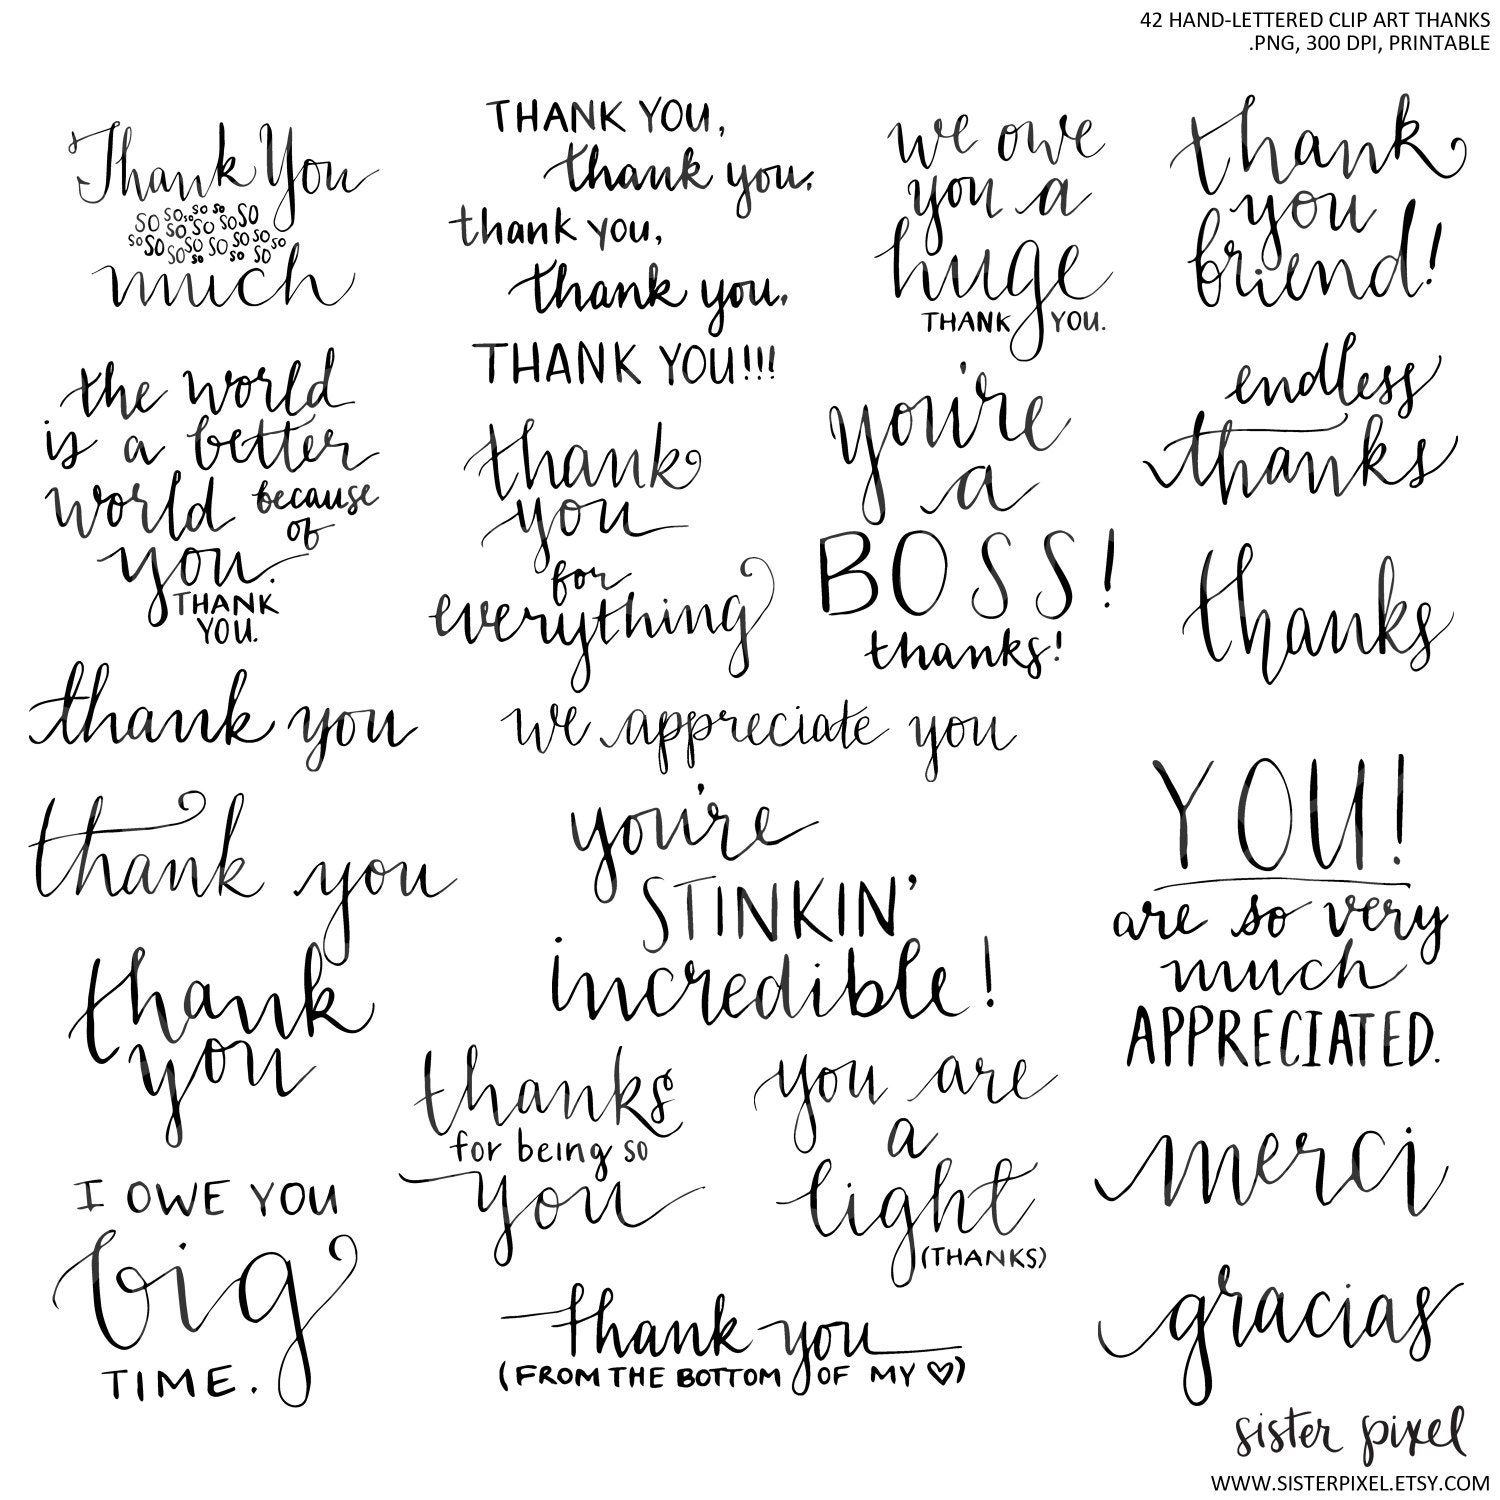 42 HAND-LETTERED CLIP ART THANKS
.PNG, 300 DPI, PRINTABLE
Thank You
SO SO SO SO SO
SO SO SO SO
SO SO SO SO SO SO SO SO
SO SO SO SO
much
THANK YOU,
thank you,
thank you,
thank you,
THANK YOU!!!
we owe
you a
huge
THANK YOU.
thank
you
friend!
the world
is a better
world because
of
you.
THANK
YOU.
thank
you
for
everything
you're
a
BOSS!
thanks!
endless
thanks
thanks
thank you
we appreciate you
thank you
you're
STINKIN'
incredible!
YOU!
are so very
much
APPRECIATED.
thank
you
thanks
for being so
you
you are
a
light
(THANKS)
merci
I OWE YOU
big
TIME.
thank you
(FROM THE BOTTOM OF MY ♡)
gracias
sister pixel
WWW.SISTERPIXEL.ETSY.COM